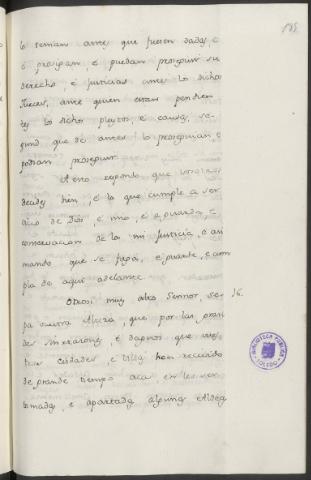 185
lo tenian antes que fuesen dadas, e
o prosigan, e puedan proseguir su
derecho, e justicias ante los dichos
Jueces, ante quien estan pendien
tes los dichos pleytos, e causas, se-
gund que de antes lo proseguian, e
podian proseguir.
A esto respondo que
decides bien, e lo que cumple a ser
vicio de Dios, e mio, e a guarda, e
conservacion de la mi justicia, e asi
mando que se faga, e guarde, e cum
pla de aqui adelante.
Otrosi muy alto Sennor, se- 36.
pa vuestra Alteza, que por las gran
des sinrazones, e dapnos que vues
tras cibdades, e villas han recevido
de grande tiempo acá, en les ser
tomadas, e apartadas algunas Aldeas
BIBLIOTECA PUBLICA
TOLEDO